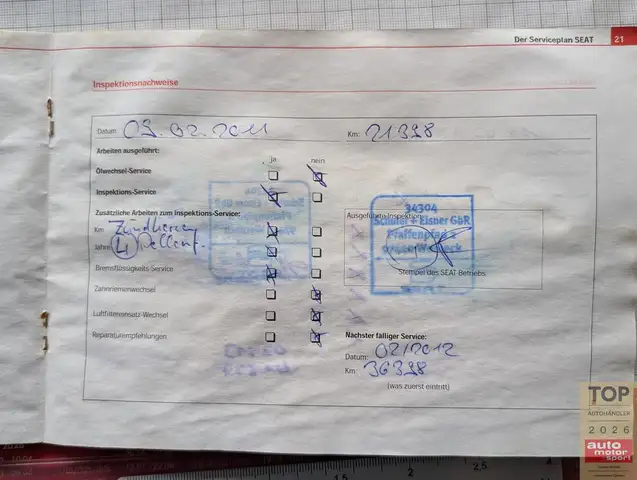 Der Serviceplan SEAT 21
Inspektionsnachweise
Datum: 09.02.2011 Km: 21398
Arbeiten ausgeführt:
ja nein
Ölwechsel-Service
Inspektions-Service
Zusätzliche Arbeiten zum Inspektions-Service:
Km Zündkerzen
Jahre 4
Bremsflüssigkeits-Service
Zahnriemenwechsel
Luftfiltereinsatz-Wechsel
Reparaturempfehlungen
Ausgeführte Inspektion
34304
Schüler + Eisner GbR
Stempel des SEAT-Betriebs
Nächster fälliger Service:
Datum: 02/2012
Km: 36398
(was zuerst eintritt)
TOP
AUTOHÄNDLER
2026
auto
motor
sport
2
2,5